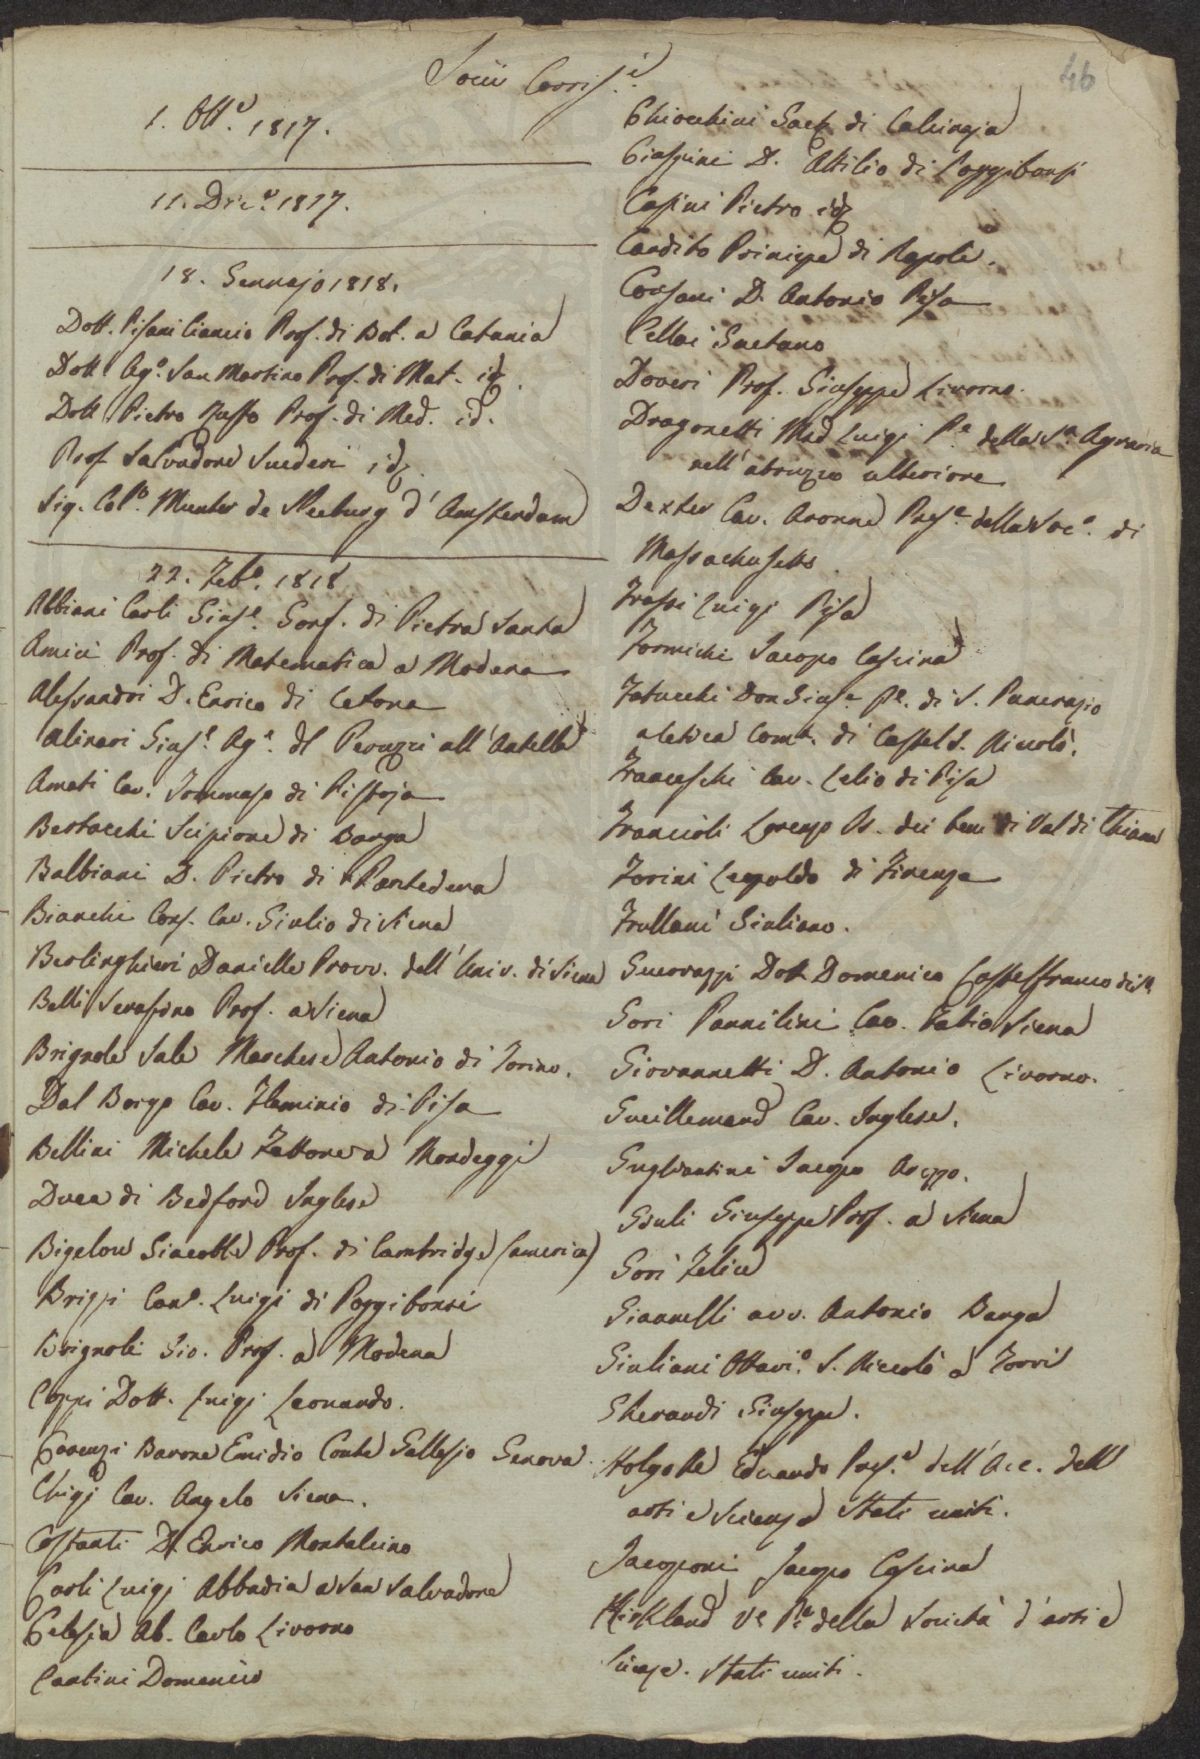 Socii Corrisp.i
46
1. Ott.e 1817.
11. Dic.e 1817.
18. Gennajo 1818.
Dott. Pisani Ciancio Prof. di Bot. a Catania
Dott. Ag.o San Martino Prof. di Mat. id.
Dott. Pietro Russo Prof. di Med. id.
Prof. Salvadore Scuderi id.
Sig. Col.o Munter de Meeburg d'Amsterdam
22. Feb.o 1818
Abbiani Carli Gius.e Gonf. di Pietra Santa
Amici Prof. di Matematica a Modena
Alessandri D. Enrico di Cetona
Alinari Gius.e Ag.e dl Peruzzi all'Antella
Amati Cav. Tommaso di Pistoja
Bertacchi Scipione di Barga
Balbiani D. Pietro di Pontedera
Bianchi Conf. Cav. Giulio di Siena
Berlinghieri Danielle Provv. dell'Univ. di Siena
Belli Serafino Prof. a Siena
Brignole Sale Marchese Antonio di Torino.
Dal Borgo Cav. Flaminio di Pisa
Bellini Michele Fattore a Mondeggi
Duca di Bedford Inglese
Bigelow Giacobbe Prof. di Cambridge (america)
Brizzi Can.o Luigi di Poggibonsi
Brignoli Gio. Prof. a Modena
Coppi Dott. Luigi Leonardo.
Corenzi Barone Emidio Conte Gallesjo Genova.
Chigi Cav. Angelo Siena.
Costanti D. Enrico Montalcino
Carli Luigi Abbadia a San Salvadore
Celesia Ab. Carlo Livorno
Cantini Domenico
Chiocchini Gaet. di Calcinaja
Ciaspini D. Attilio di Poggibonsi
Casini Pietro id.
Cardito Principe di Napoli.
Corsani D. Antonio Pisa
Cellai Gaetano
Doveri Prof. Giuseppe Livorno.
Dragonetti Luigi P.e della S.a Agraria
nell'abruzzo ulteriore
Dexter Cav. Aronne Pres.e della Soc.a di
Massachusetts.
Frassi Luigi Pisa
Formichi Jacopo Cascina
Fatucchi Don Gius.e P.e di S. Pancrazio
a Cetica Com.tà di Castel S. Niccolò.
Franceschi Cav. Lelio di Pisa
Francioli Lorenzo dei beni di Val di Chiana
Forini Leopoldo di Firenze
Frullani Giuliano.
Guerrazzi Dott. Domenico Castelfranco di S.
Gori Pannilini Cav. Fabio Siena
Giovannetti D. Antonio Livorno.
Gueillemard Cav. Inglese.
Guglantini Jacopo Arezzo.
Giuli Giuseppe Prof. a Siena
Gori Felice
Giannelli avv. Antonio Barga
Giuliani Ottavi.o S. Niccolò a Forri
Gherardi Giuseppe.
Holyoke Eduardo Pres.e dell'Acc. dell'
arti e scienze Stati uniti.
Jacoponi Jacopo Cascina
Kirkland V.e P.e della Società d'arti e
Scienze. Stati uniti.